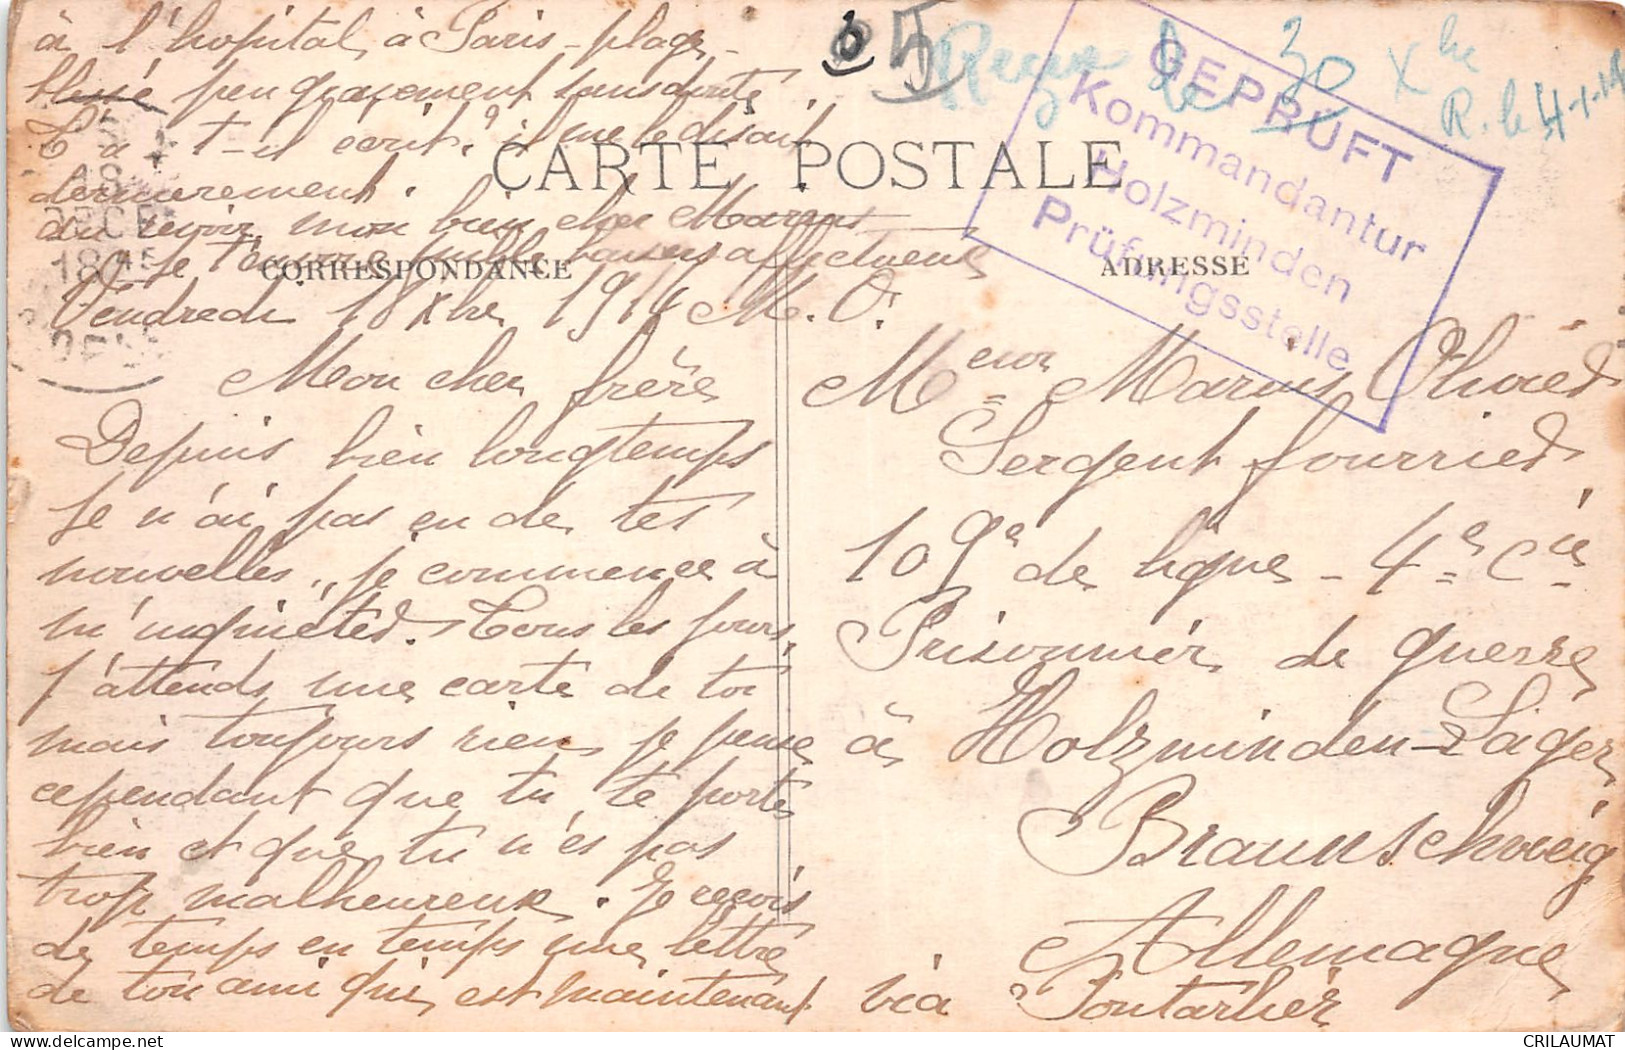 à l'hopital, à Paris-plage,
blessé peu gravement sans doute.
T'a t-il écrit? il me le disait
dernièrement.
au revoir, mon bien cher Marius
Je t'envoie mille baisers affectueux
Vendredi 18 Xbre 1914 M. O.
Mon cher frère
Depuis bien longtemps
je n'ai pas eu de tes
nouvelles, je commence à
m'inquiéter. Tous les jours,
j'attends une carte de toi
mais toujours rien, je pense
cependant que tu te portes
bien et que tu n'es pas
trop malheureux. Je reçois
de temps en temps une lettre
de ton ami qui est maintenant
CARTE POSTALE
CORRESPONDANCE
ADRESSE
05
Reçue le 30 Xbre
R. le 4-1-15
GEPRÜFT
Kommandantur
Holzminden
Prüfungsstelle
Meur Marius Olivier
Sergent fourrier
109e de ligne - 4e Cie
Prisonnier de guerre
à Holzminden-Läger
Braunschweig
Allemagne
via Pontarlier
CRILAUMAT